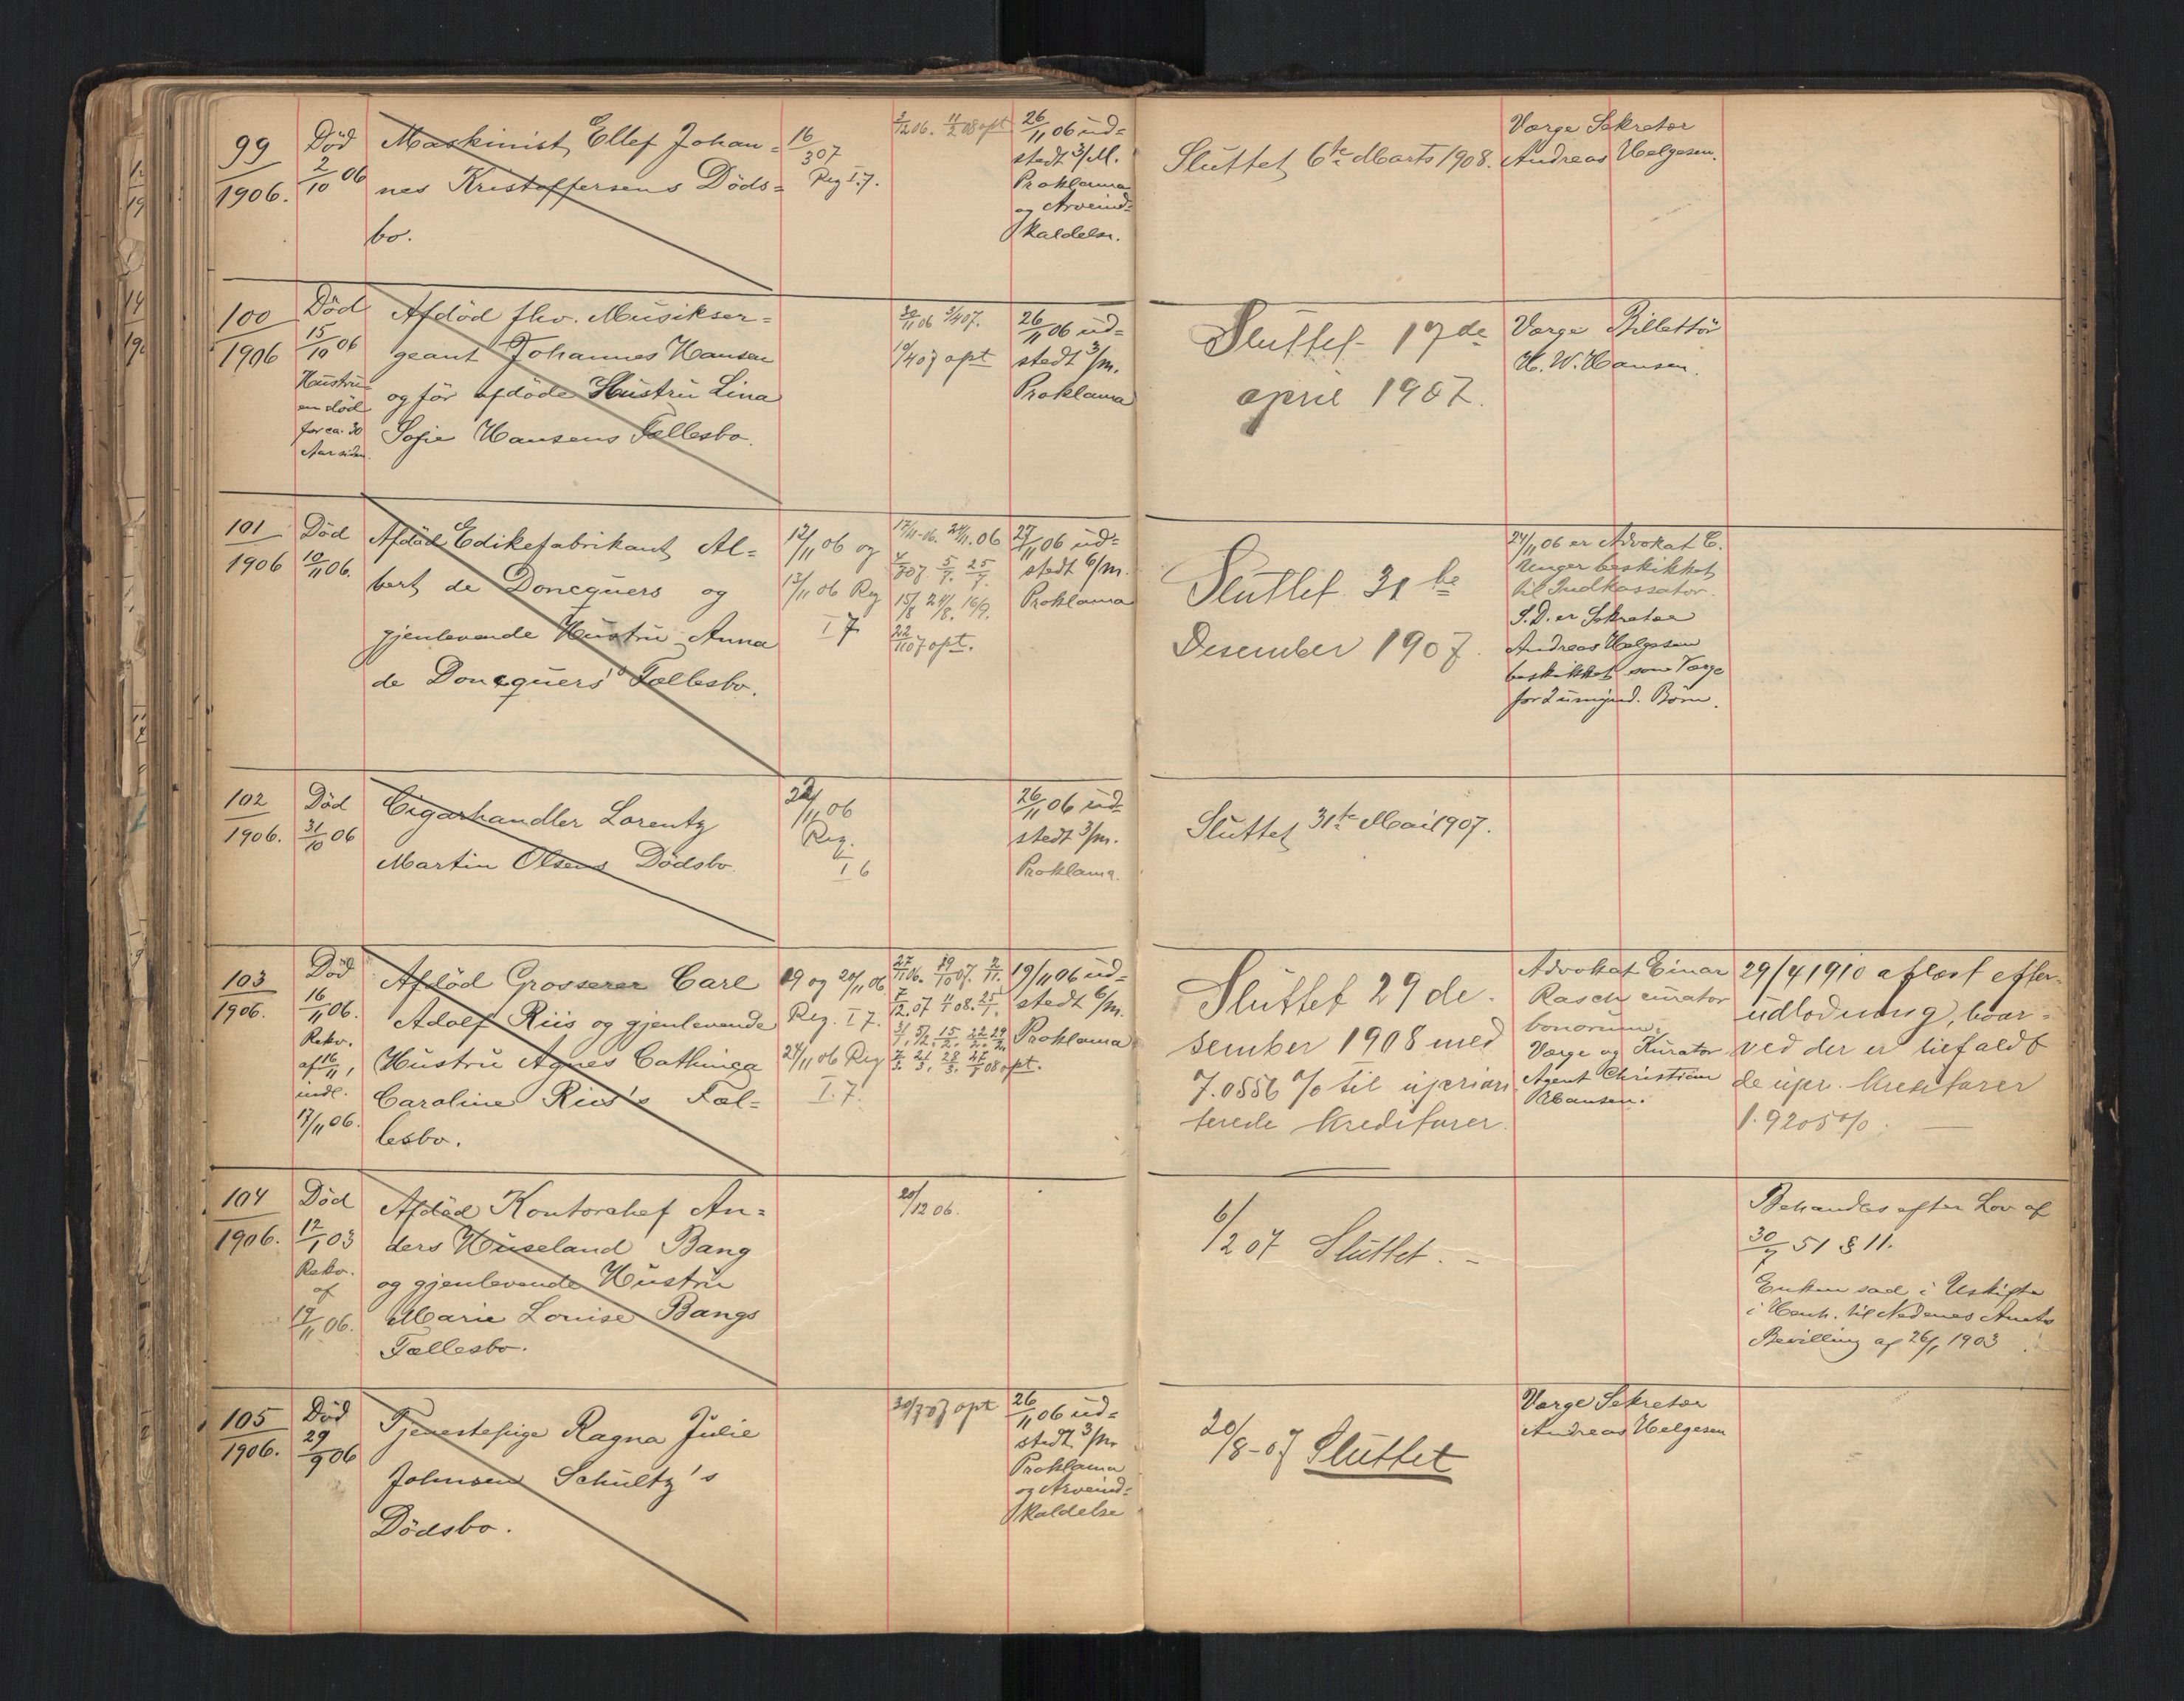 99
1906.
Död
2/10 06
Maskinist Ellef Johan=
nes Kristoffersens Döds=
bo.
16/3 07
Reg I.7.
3/12 06. 11/2 08 opt
26/11 06 ud=
stedt 3/M.
Proklama
og Arveind=
kaldelse.
Sluttet 6te Marts 1908.
Værge Sekretær
Andreas Helgesen.
100
1906
Död
15/10 06
Hustru=
en död
for ca. 30
Aar siden.
Afdöd fhv. Musikser=
geant Johannes Hansen
og för afdöde Hustru Lina
Sofie Hansens Fællesbo.
30/11 06 3/4 07.
9/4 07 opt
26/11 06 ud=
stedt 3/m.
Proklama
Sluttet 17de
april 1907.
Værge Billettör
H. W. Hansen.
101
1906
Död
10/11 06.
Afdöd Edikefabrikant Al=
bert de Doncquers og
gjenlevende Hustru Anna
de Doncquers' Fællesbo.
12/11 06 og
13/11 06 Reg
I 7
17/11-06. 24/11 06
5/7. 25/7.
15/8 24/8. 16/9.
22/11 07 opt.
27/11 06 ud=
stedt 6/m.
Proklama
Sluttet 31te
Desember 1907.
24/11 06 er Advokat C.
Unger beskikket
til Indkassator.
S.D. er Sekretær
Andreas Helgesen
beskikket som Værge
for 2 umynd. Börn.
102
1906.
Död
31/10 06
Cigarhandler Lorentz
Martin Olsens Dödsbo.
22/11 06
Reg.
I 6
26/11 06 ud=
stedt 3/m.
Proklama.
Sluttet 31te Mai 1907.
103
1906.
Död
16/11 06.
Rekv.
af 16/11,
indl.
17/11 06.
Afdöd Grosserer Carl
Adolf Riis og gjenlevende
Hustru Agnes Cathinca
Caroline Riis's Fæl=
lesbo.
19 og 20/11 06
Reg. I 7.
24/11 06 Reg
I. 7.
27/11 06. 19/10 07. 2/11.
7/12. 07 4/1 08. 25/1.
31/1. 5/2. 15/2. 22/2. 29/2.
7/3. 21/3. 28/3. 27/8 08 opt.
19/11 06 ud=
stedt 6/m.
Proklama
Sluttet 29 de=
sember 1908 med
7.0556 % til upriori
terede kreditorer.
Advokat Einar
Rasch curator
bonorum.
Værge og Kurator
Agent Christian
Hansen.
29/4 1910 aflæst efter=
udlodning, hvor=
ved der er tilfaldt
de upr. kreditorer
1.9205 %.
104
1906.
Död
12/1 03
Rekv.
af
19/11 06.
Afdöd Kontorchef An=
ders Huseland Bang
og gjenlevende Hustru
Marie Louise Bangs
Fællesbo.
20/12 06.
6/2 07 Sluttet. -
Behandles efter Lov af
30/7 51 § 11.
Enken sad i Uskifte
i Henh. til Nedenes Amts
Bevilling af 26/1 1903
105
1906.
Död
29/9 06
Tjenestepige Ragna Julie
Johnsen Schultz's
Dödsbo.
30/7 07 opt
26/11 06 ud=
stedt 3/m
Proklama
og Arveind=
kaldelse
20/8-07 Sluttet
Værge Sekretær
Andreas Helgesen